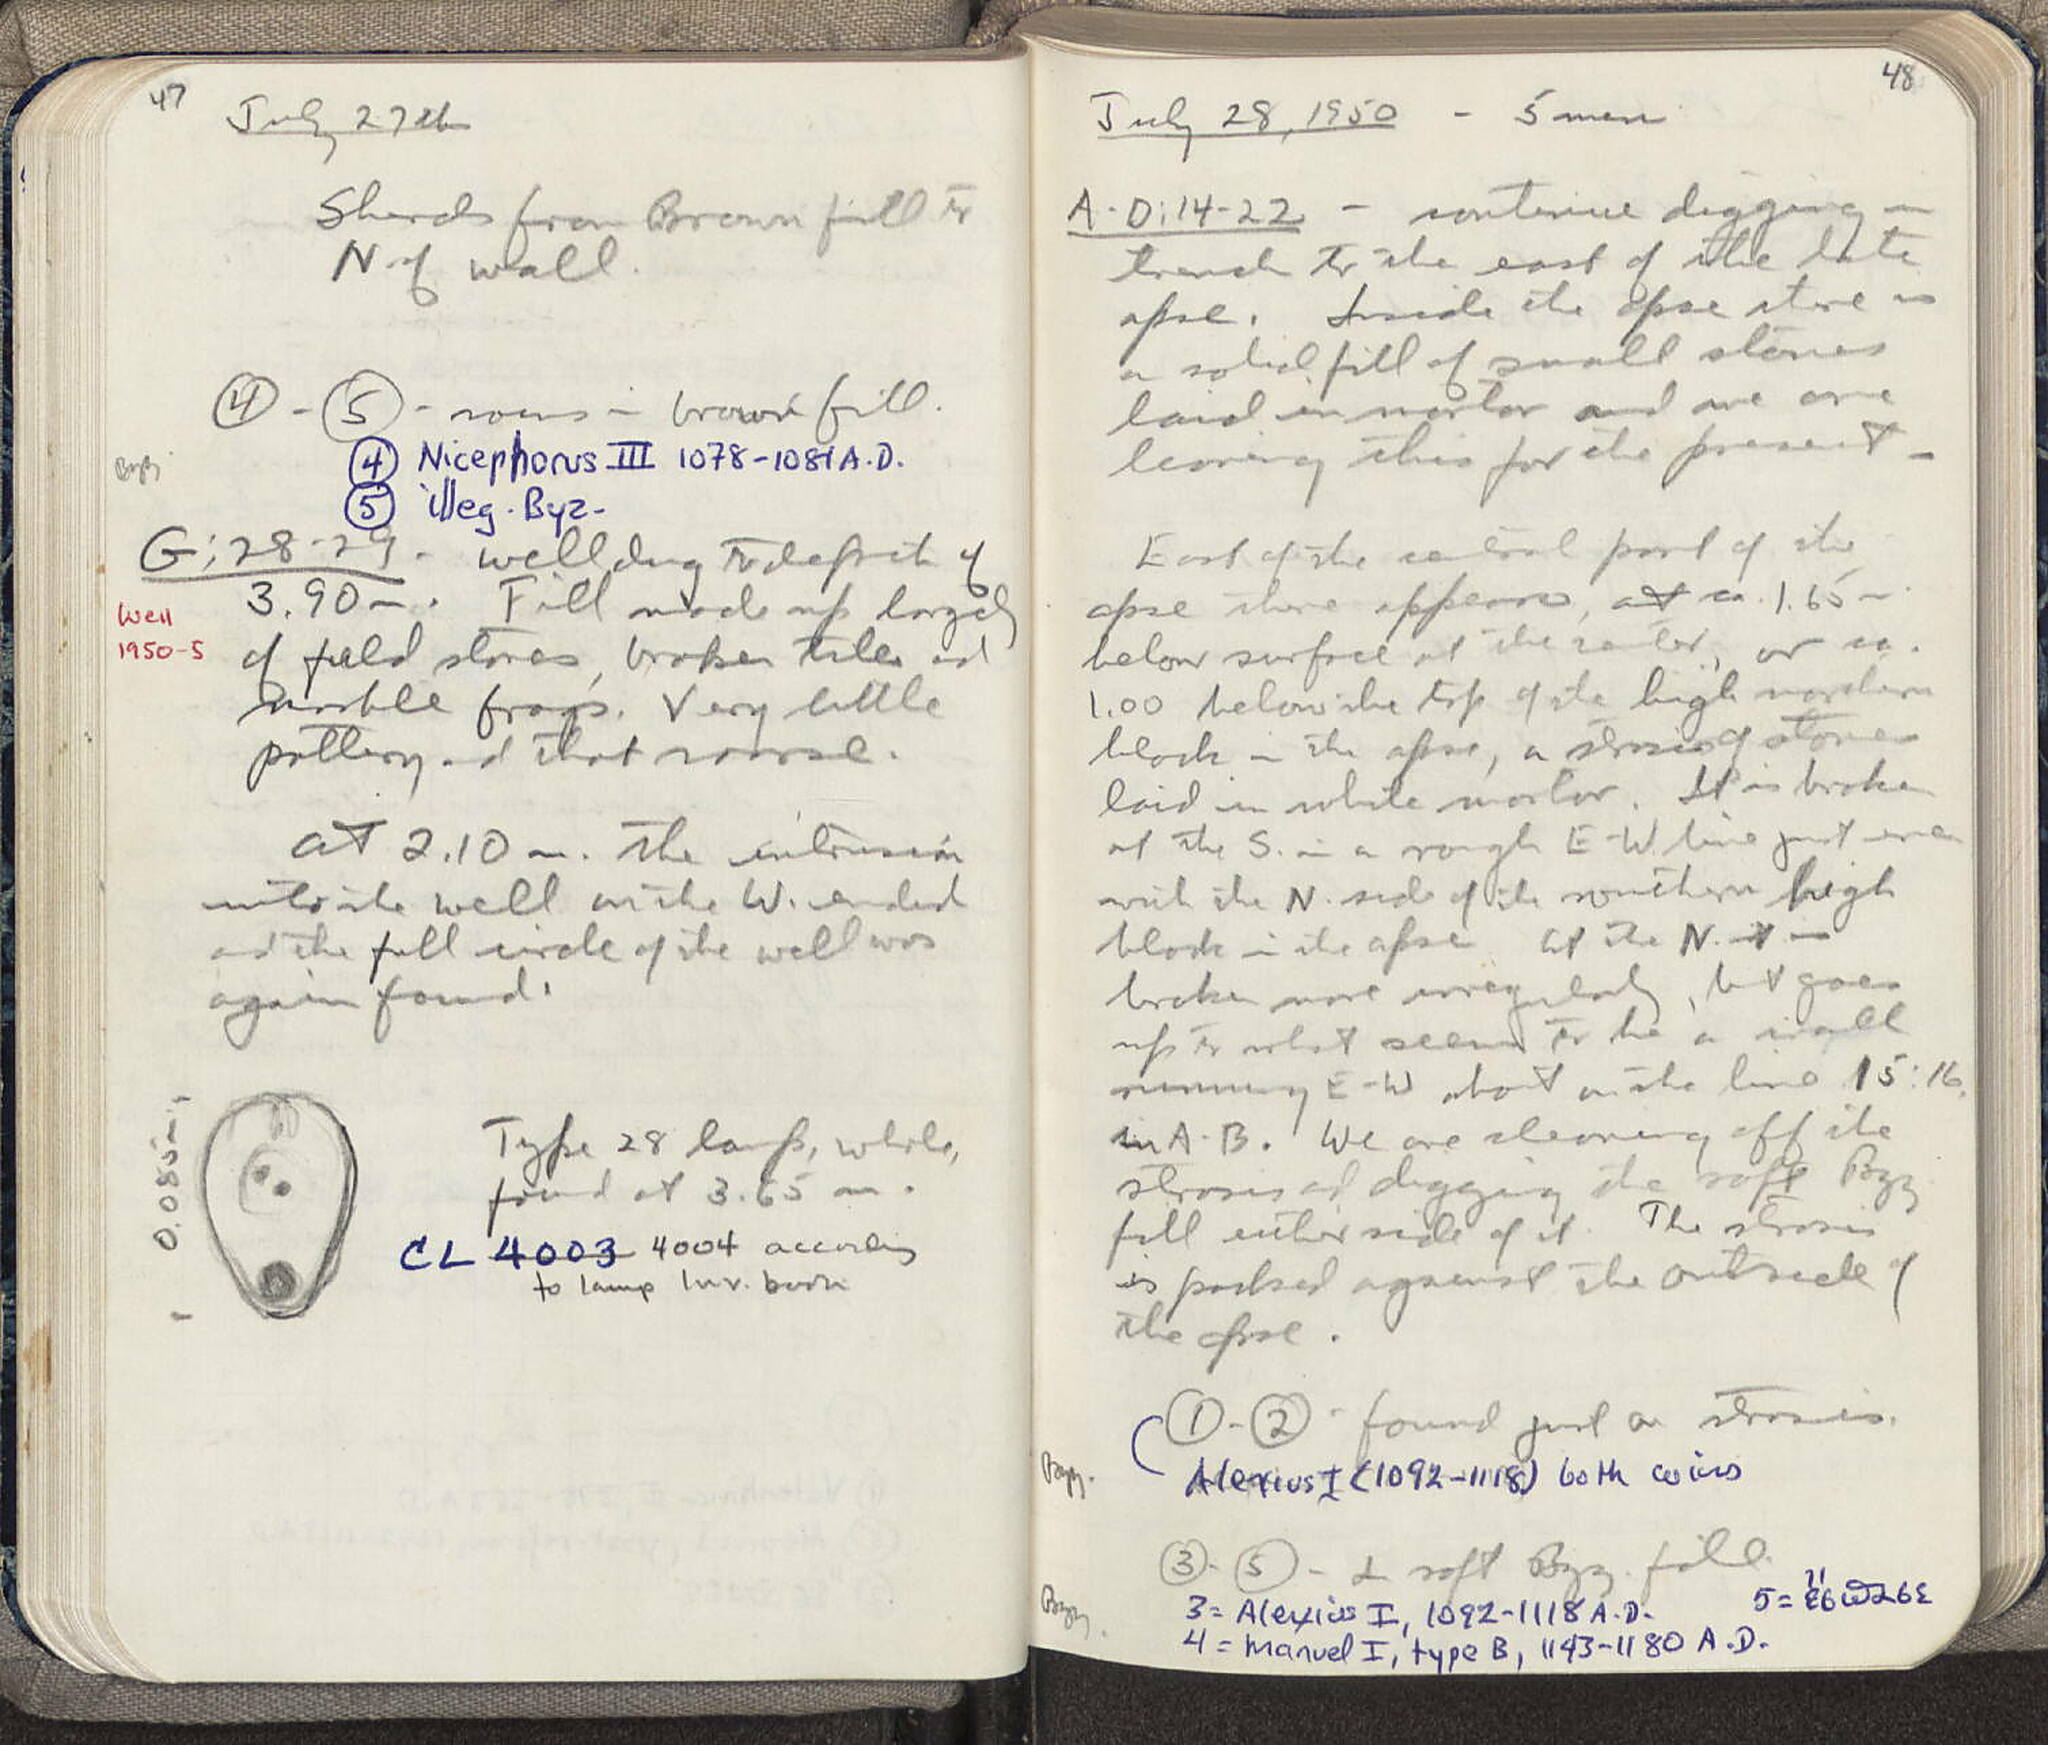 47
July 27th
Sherds from Brown fill to
N of wall.
④ - ⑤ - coins in brown fill.
Byz.
④ Nicephorus III 1078-1081 A.D.
⑤ illeg. Byz.
G:28-29 - well dug to depth of
3.90 m. Fill made up largely
Well
1950-5
of field stones, broken tiles and
marble frags. Very little
pottery and that coarse.
At 2.10 m. the intrusion
into the well on the W. ended
and the full circle of the well was
again found.
0.085 m
Type 28 lamp, whole,
found at 3.65 m.
CL 4003 4004 according
to lamp Inv. book
48
July 28, 1950 - 5 men
A-D:14-22 - continue digging in
trench to the east of the late
apse. Inside the apse there is
a solid fill of small stones
laid in mortar and we are
leaving this for the present -
East of the central part of the
apse there appears, at ca. 1.65 m.
below surface at the center, or ca.
1.00 below the top of the high northern
block in the apse, a strosis of stones
laid in white mortar. It is broken
at the S. in a rough E-W line just even
with the N. side of the southern high
block in the apse. At the N. it is
broken more irregularly, but goes
up to what seems to be a wall
running E-W about on the line 15:16
in A-B. We are cleaning off the
strosis and digging the soft Byz
fill either side of it. The strosis
is packed against the outside of
the apse.
① - ② - found just on strosis.
Byz. Alexius I (1092-1118) both coins
③ - ⑤ - in soft Byz. fill.
Byz. 3 = Alexius I, 1092-1118 A.D. 5 =
4 = Manuel I, type B, 1143-1180 A.D.